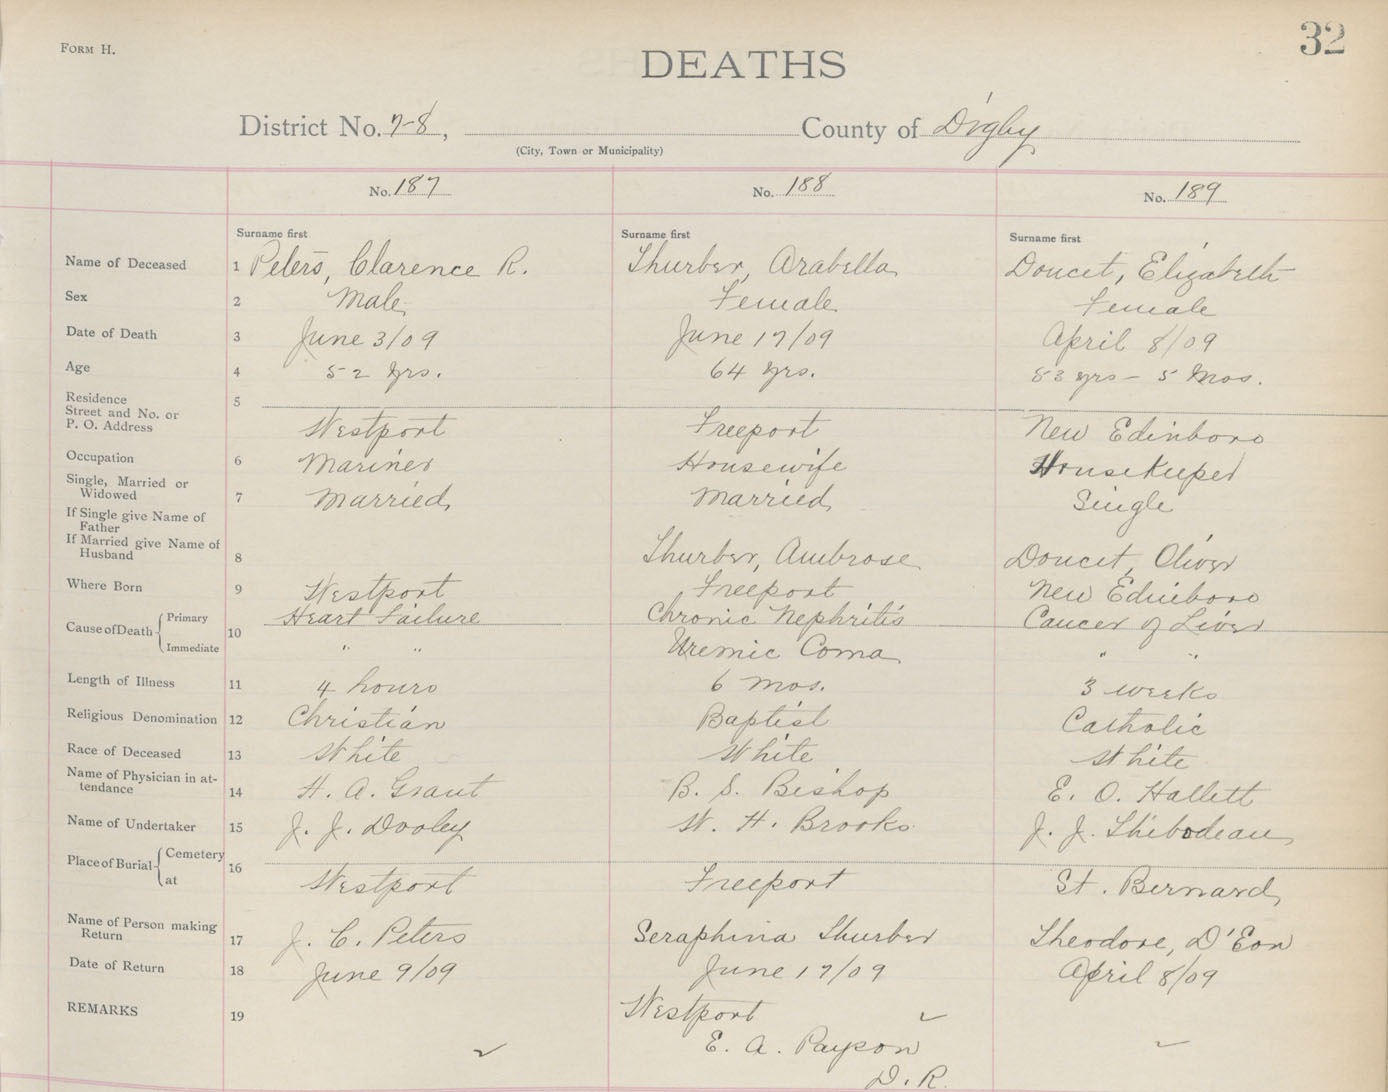 FORM H.
32
DEATHS
District No. 7-8, County of Digby
(City, Town or Municipality)
No. 187 No. 188 No. 189
Surname first Surname first Surname first
Name of Deceased 1 Peters, Clarence R. Thurber, Arabella Doucet, Elizabeth
Sex 2 Male Female Female
Date of Death 3 June 3/09 June 17/09 April 8/09
Age 4 52 yrs. 64 yrs. 83 yrs - 5 Mos.
Residence 5
Street and No. or
P. O. Address Westport Freeport New Edinboro
Occupation 6 Mariner Housewife Housekeeper
Single, Married or
Widowed 7 Married Married Single
If Single give Name of
Father
If Married give Name of
Husband 8 Thurber, Ambrose Doucet, Oliver
Where Born 9 Westport Freeport New Edinboro
Cause of Death 10 Primary Heart Failure Chronic Nephritis Cancer of Liver
Immediate " " Uremic Coma " "
Length of Illness 11 4 hours 6 mos. 3 weeks
Religious Denomination 12 Christian Baptist Catholic
Race of Deceased 13 White White White
Name of Physician in at-
tendance 14 H. A. Grant B. S. Bishop E. O. Hallett
Name of Undertaker 15 J. J. Dooley W. H. Brooks J. J. Thibodeau
Place of Burial 16 Cemetery
at Westport Freeport St. Bernard
Name of Person making
Return 17 J. C. Peters Seraphina Thurber Theodore, D'Eon
Date of Return 18 June 9/09 June 17/09 April 8/09
REMARKS 19 Westport
E. A. Payson
D. R.